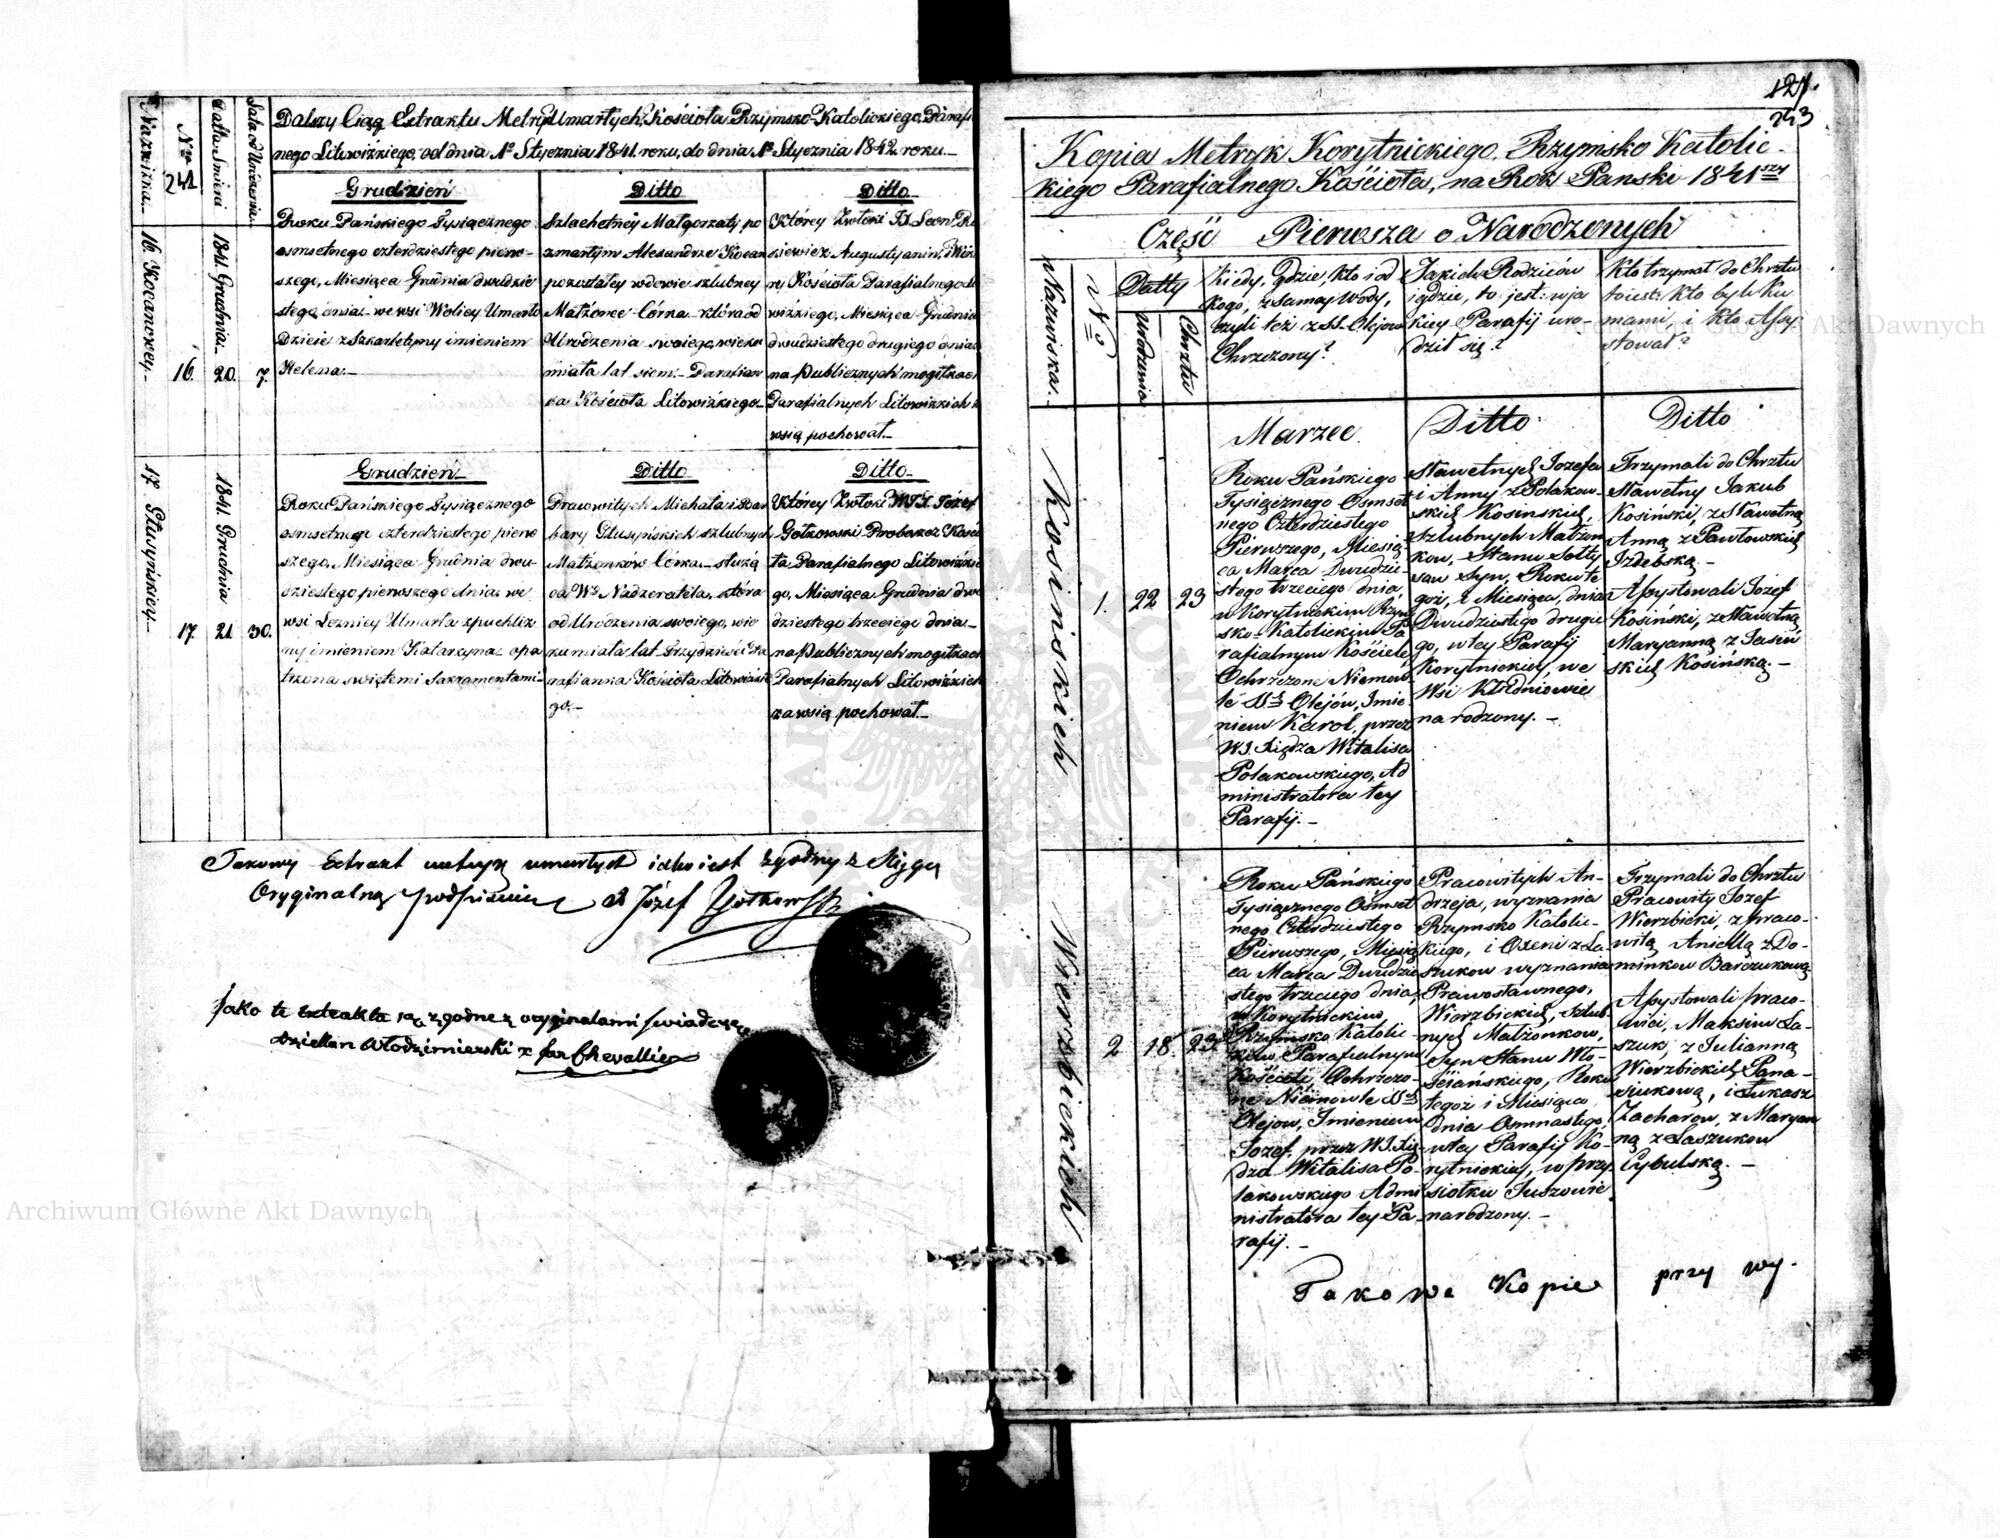 Dalszy Ciąg Extraktu Metryk Umarłych, Kościoła Rzymsko-Katolickiego, Parafial
nego Litowizkiego, od dnia 1º Stycznia 1841. roku, do dnia 1º Stycznia 1842 roku.
Nazwiska.
Nrr
241
Datta Śmierci
Lata od Urodzenia.
16. Kocanowey.
16.
1841. Grudnia.
20.
7.
Grudzień
Roku Pańskiego Tysiącznego
osmsetnego czterdziestego pierw-
szego, Miesiąca Grudnia dwudzie
stego, dnia we wsi Wolicy Umarło
Dziecie z Szkarlatyny imieniem
Helena.
Ditto
Szlachetney Małgorzaty po
zmarłym Alexandrze Kocan
pozostałey wdowie szlubney
Małżonce Córka która od
Urodzenia swoiego, wieku
miała lat siem. Parafian
ka Kościoła Litowizkiego.
Ditto
Którey Zwłoki
Augustyanin,
ry Kościoła Parafialnego
wizkiego, Miesiąca Grudnia
dwudziestego drugiego dnia
na publicznych mogiłkach
Parafialnych Litowizkich
wsią pochował.
17. Głuzyńskiey.
17.
1841. Grudnia
21.
30.
Grudzień
Roku Pańskiego Tysiącznego
osmsetnego czterdziestego pierw
szego, Miesiąca Grudnia dwu
dziestego pierwszego dnia we
wsi Leznicy Umarła z puchliz
ny imieniem Katarzyna opa
trzona swiętemi Sakramentami
Ditto
Pracowitych Michała i Bar
bary Głuzyńskich szlubnych
Małżonków Córka służą
ca Wº Nadzeratela, która
od Urodzenia swoiego, wie
ku miała lat Trzydzieści Pa
rafianka Kościoła Litowizkie
go.
Ditto
Którey Zwłoki Józef
Gołkowski Proboszcz Kości
ła Parafialnego Litowizkie
go, Miesiąca Grudnia dwu
dziestego trzeciego dnia
na publicznych mogiłkach
Parafialnych Litowizkich
za wsią pochował.
Takowy Extrakt metryk umarłych iako iest zgodny z Xięgą
Oryginalną podpisuię X Józef Gołkowski
Jako te extrakta są zgodne z oryginałami świadczę
Dziekan Włodzimierski X
121.
243
Kopia Metryk Korytnickiego, Rzymsko Katolic-
kiego Parafialnego Kościoła, na Rok Panski 1841szy
Część Pierwsza o Narodzonych
Nazwiska.
Nº
Datty
Urodzenia
Chrztu
Kiedy, gdzie, kto i od
kogo, z samey Wody,
czyli też z SS. Olejow
Chrzczony?
Jakich Rodziców
i gdzie, to jest: w ja
kiey Parafij uro-
dził się?
Kto trzymał do Chrztu
to iest: kto byli Ku
mami i kto Assy
stował?
Kosinskich
1.
22
23
Marzec.
Roku Pańskiego
Tysiącznego Osmset
nego Czterdziestego
Pierwszego, Miesią
ca Marca Dwudzie
stego trzeciego dnia,
w Korytnickim Rzym
sko-Katolickim Pa
rafialnym Kościele,
Ochrzczone Niemow
lę SS. Olejów, Imie
niem Karol, przez
WJ. Xiędza Witalisa
Polakowskiego, Ad
ministratora tey
Parafij.
Ditto
Sławetnych Jozefa
i Anny z Polakow-
skich Kosinskich,
szlubnych Małżon
kow, Stanu Sołty
sow Syn, Roku te
goż, i Miesiąca, dnia
Dwudziestego drugie
go, w tey Parafij
Korytnickiey, we
Wsi
narodzony.
Ditto
Trzymali do Chrztu
Sławetny Jakub
Kosiński, z Sławetną
Anną z Pawłowskich
Izdebską.
Assystowali Jozef
Kosiński, z Sławetną
Maryanną z Sasiń
skich Kosińską.
Wierzbickich
2
18.
23
Roku Pańskiego
Tysiącznego Osmset
nego Czterdziestego
Pierwszego, Miesią
ca Marca Dwudzie
stego trzeciego dnia,
w Korytnickim,
Rzymsko Katolic-
kim Parafialnym
Kościele, Ochrzczo-
ne Niemowle SS.
Olejow, Imieniem
Jozef, przez WJ. Xię-
dza Witalisa Po-
lakowskiego Admi
nistratora tey Pa-
rafij.
Pracowitych An-
drzeja, wyznania
Rzymsko Katolic-
kiego, i Oxeni z La-
szukow wyznania
Prawosławnego,
Wierzbickich, szlub-
nych Małżonkow,
Syn Stanu Wło-
ściańskiego, Roku
tegoż i Miesiąca,
dnia Osmnastego,
w tey Parafij Ko-
rytnickiey, w przy
siołku Juszowie
narodzony.
Trzymali do Chrztu
Pracowity Jozef
Wierzbicki, z Praco-
witą Aniellą z Do-
minkow Barczukową.
Assystowali praco-
wici, Maksim La-
szuk, z Julianną
Wierzbickich Pana-
siukową, i Łukasz
Zacharow, z Maryan
ną z Laszukow
Cybulską.
Takowe Kopie przy wy-
Archiwum Główne Akt Dawnych
Archiwum Główne Akt Dawnych